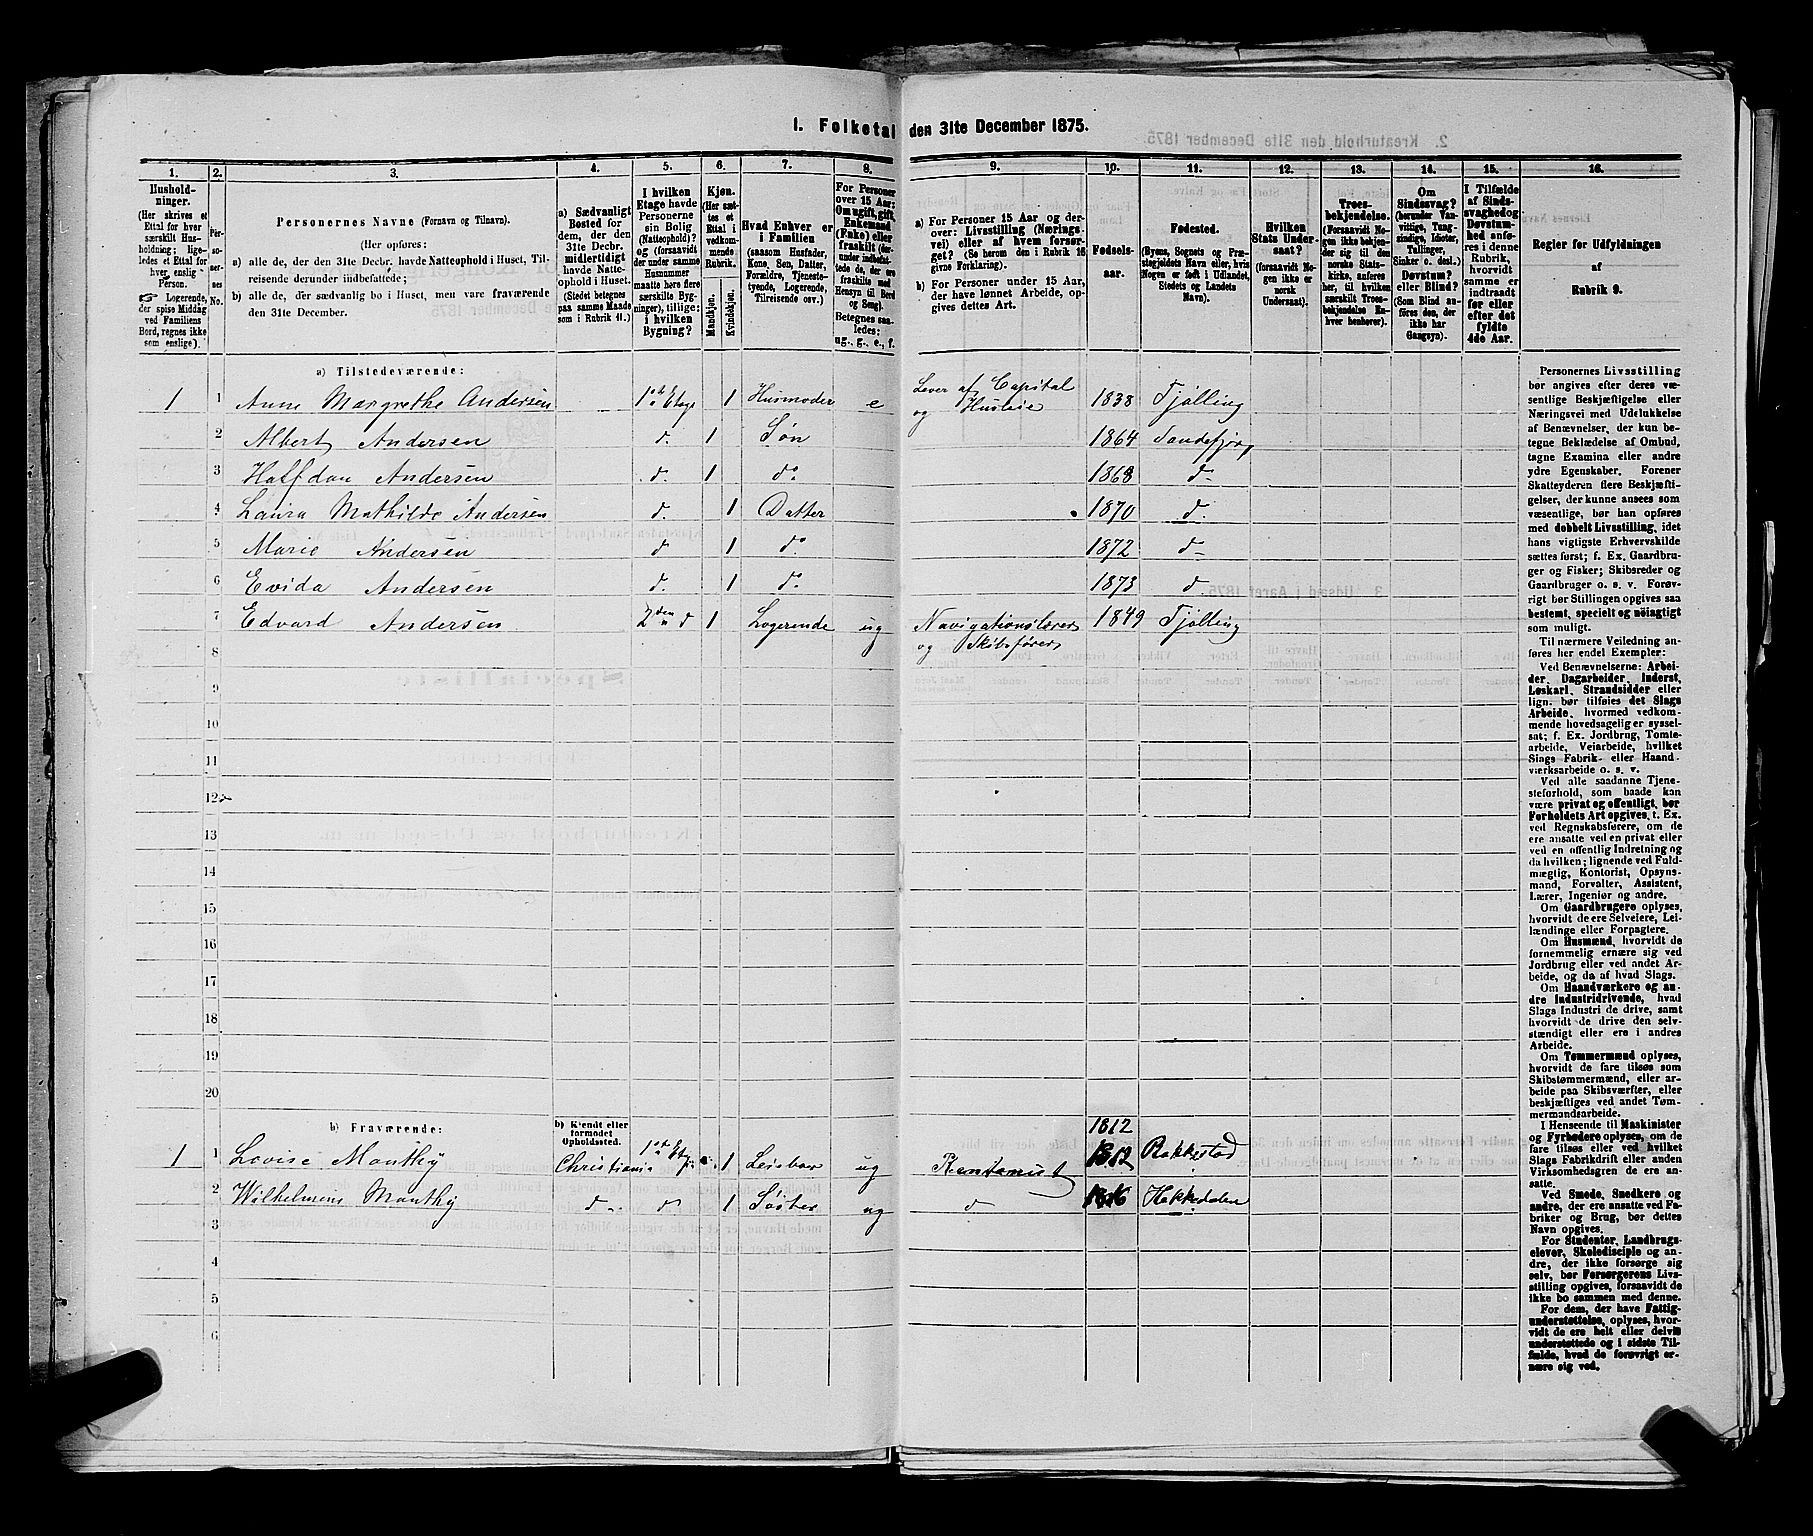 1. Folketal den 31te December 1875.
1. 2. 3. 4. 5. 6. 7. 8. 9. 10. 11. 12. 13. 14. 15. 16.
Hushold-
ninger.
(Her skrives et
Ettal for hver
særskilt Hus-
holdning; lige-
ledes et Ettal for
hver enslig
Person.
Logerende,
der spise Middag
ved Familiens
Bord, regnes ikke
som enslige).
Per-
so-
ner-
nes
No.
Personernes Navne (Fornavn og Tilnavn).
(Her opføres:
a) alle de, der den 31te Decbr. havde Natteophold i Huset, Til-
reisende derunder indbefattede;
b) alle de, der sædvanlig bo i Huset, men vare fraværende
den 31te December.
a) Sædvanligt
Bosted for
dem, der den
31te Decbr.
midlertidigt
havde Natte-
ophold i Huset.
(Stedet betegnes
paa samme Maade
som i Rubrik 11.)
I hvilken
Etage havde
Personerne
sin Bolig
(Natteophold)?
og (forsaavidt
der under samme
Husnummer
maatte høre flere
særskilte Byg-
ninger), tillige:
i hvilken
Bygning?
Kjøn.
(Her sæt-
tes et
Ettal i
vedkom-
mende
Rubrik.
Mandkjøn.
Kvindekjøn.
Hvad Enhver er
i Familien
(saasom Husfader,
Kone, Søn, Datter,
Forældre, Tjeneste-
tyende, Logerende,
Tilreisende osv.)
For Personer
over 15 Aar:
Om ugift, gift,
Enkemand
(Enke) eller
fraskilt (der-
under indbefat-
tede de, der ere
fraskilte med
Hensyn til Bord
og Seng).
Betegnes saa-
ledes:
ug., g., e., f.
a) For Personer 15 Aar og der-
over: Livsstilling (Nærings-
vei) eller af hvem forsør-
get? (Se herom den i Rubrik 16
givne Forklaring).
b) For Personer under 15 Aar,
der have lønnet Arbeide, op-
gives dettes Art.
Fødsels-
aar.
Fødested.
(Byens, Sognets og Præ-
stegjeldets Navn eller, hvis
Nogen er født i Udlandet,
Stedets og Landets
Navn).
Hvilken
Stats Under-
saat?
(forsaavidt No-
gen ikke er
norsk
Undersaat).
Troes-
bekjendelse.
(Forsaavidt No-
gen ikke bekjen-
der sig til den
norske Stats-
kirke, anføres
her, til hvilken
særskilt Troes-
bekjendelse En-
hver henhører).
Om
Sindssvag?
(herunder Van-
vittige, Tung-
sindige, Idioter,
Tullinger,
Sinker o. desl.)
Døvstum?
eller Blind?
(Som Blind an-
føres den, der
ikke har
Gangsyn).
I Tilfælde
af Sinds-
svaghed og
Døvstum-
hed anfø-
res i denne
Rubrik,
hvorvidt
samme er
indtraadt
før eller
efter det
fyldte
4de Aar.
Regler for Udfyldningen
af
Rubrik 9.
a) Tilstedeværende:
1 1 Anne Margrethe Andersen 1ste Etage 1 Husmoder e Lever af Capital og Husleie 1838 Tjølling
2 Albert Andersen d. 1 Søn 1864 Sandefjord
3 Halfdan Andersen d. 1 do 1868 d
4 Laura Mathilde Andersen d. 1 Datter 1870 d.
5 Marie Andersen d 1 do 1872 d
6 Evida Andersen d. 1 do 1873 d
7 Edvard Andersen 2den d 1 Logerende ug Navigationslærer og Skibsfører 1849 Tjølling
8
9
10
11
12
13
14
15
16
17
18
19
20
b) Fraværende:
b) Kjendt eller
formodet
Opholdssted.
1812
1 1 Lovise Manthey Christiania 1ste Etage 1 Leieboer ug Rentenist 1812 Rakkestad
2 Wilhelmens Manthey d d 1 Søster ug d 1816 Hakkedalen
3
4
5
6
Personernes Livsstilling
bør angives efter deres væ-
sentlige Beskjæftigelse eller
Næringsvei med Udelukkelse
af Benævnelser, der kun be-
tegne Beklædelse af Ombud,
tagne Examina eller andre
ydre Egenskaber. Forener
Skatteyderen flere Beskjæfti-
gelser, der kunne ansees som
væsentlige, bør han opføres
med dobbelt Livsstilling, idet
hans vigtigste Erhvervskilde
sættes først; f. Ex. Gaardbru-
ger og Fisker; Skibsreder og
Gaardbruger o. s. v. Forøv-
rigt bør Stillingen opgives saa
bestemt, specielt og nöiagtigt
som muligt.
Til nærmere Veiledning an-
føres her endel Exempler:
Ved Benævnelserne: Arbei-
der, Dagarbeider, Inderst,
Løskarl, Strandsidder eller
lign. bør tilføies det Slags
Arbeide, hvormed vedkom-
mende hovedsagelig er syssel-
sat; f. Ex. Jordbrug, Tomte-
arbeide, Veiarbeide, hvilket
Slags Fabrik- eller Haand-
værksarbeide o. s. v.
Ved alle saadanne Tjene-
steforhold, som baade kan
være privat og offentligt, bør
Forholdets Art opgives, t. Ex.
ved Regnskabsførere, om de
ere ansatte ved en privat eller
ved en offentlig Indretning og
da hvilken; lignende ved Fuld-
mægtig, Kontorist, Opsyns-
mand, Forvalter, Assistent,
Lærer, Ingeniør og andre.
Om Gaardbrugere oplyses,
hvorvidt de ere Selveiere, Lei-
lændinge eller Forpagtere.
Om Husmænd, hvorvidt de
fornemmelig ernære sig ved
Jordbrug eller ved andet Ar-
beide, og da af hvad Slags.
Om Haandværkere og an-
dre Industridrivende, hvad
Slags Industri de drive, samt
hvorvidt de drive den selv-
stændigt eller ere i andres
Arbeide.
Om Tømmermænd oplyses,
hvorvidt de fare tilsøs som
Skibstømmermænd, eller ar-
beide paa Skibsværfter, eller
beskjæftiges ved andet Tøm-
mermandsarbeide.
I Henseende til Maskinister
og Fyrbødere oplyses, om de
fare tilsøs eller ved hvilket
Slags Fabrikdrift eller anden
Virksomhedsgren de ere an-
satte.
Ved Smede, Snedkere og
andre, der ere ansatte ved Fa-
briker og Brug, bør dettes
Navn opgives.
For Studenter, Landbrugs-
elever, Skoledisciple og an-
dre, der ikke forsørge sig
selv, bør Forsørgerens Livs-
stilling opgives, forsaavidt de
ikke bo sammen med denne.
For dem, der have Fattig-
understøttelse, oplyses, hvor-
vidt de ere helt eller delvis
understøttede og i sidste Til-
fælde, hvad de forøvrigt er-
nære sig ved.